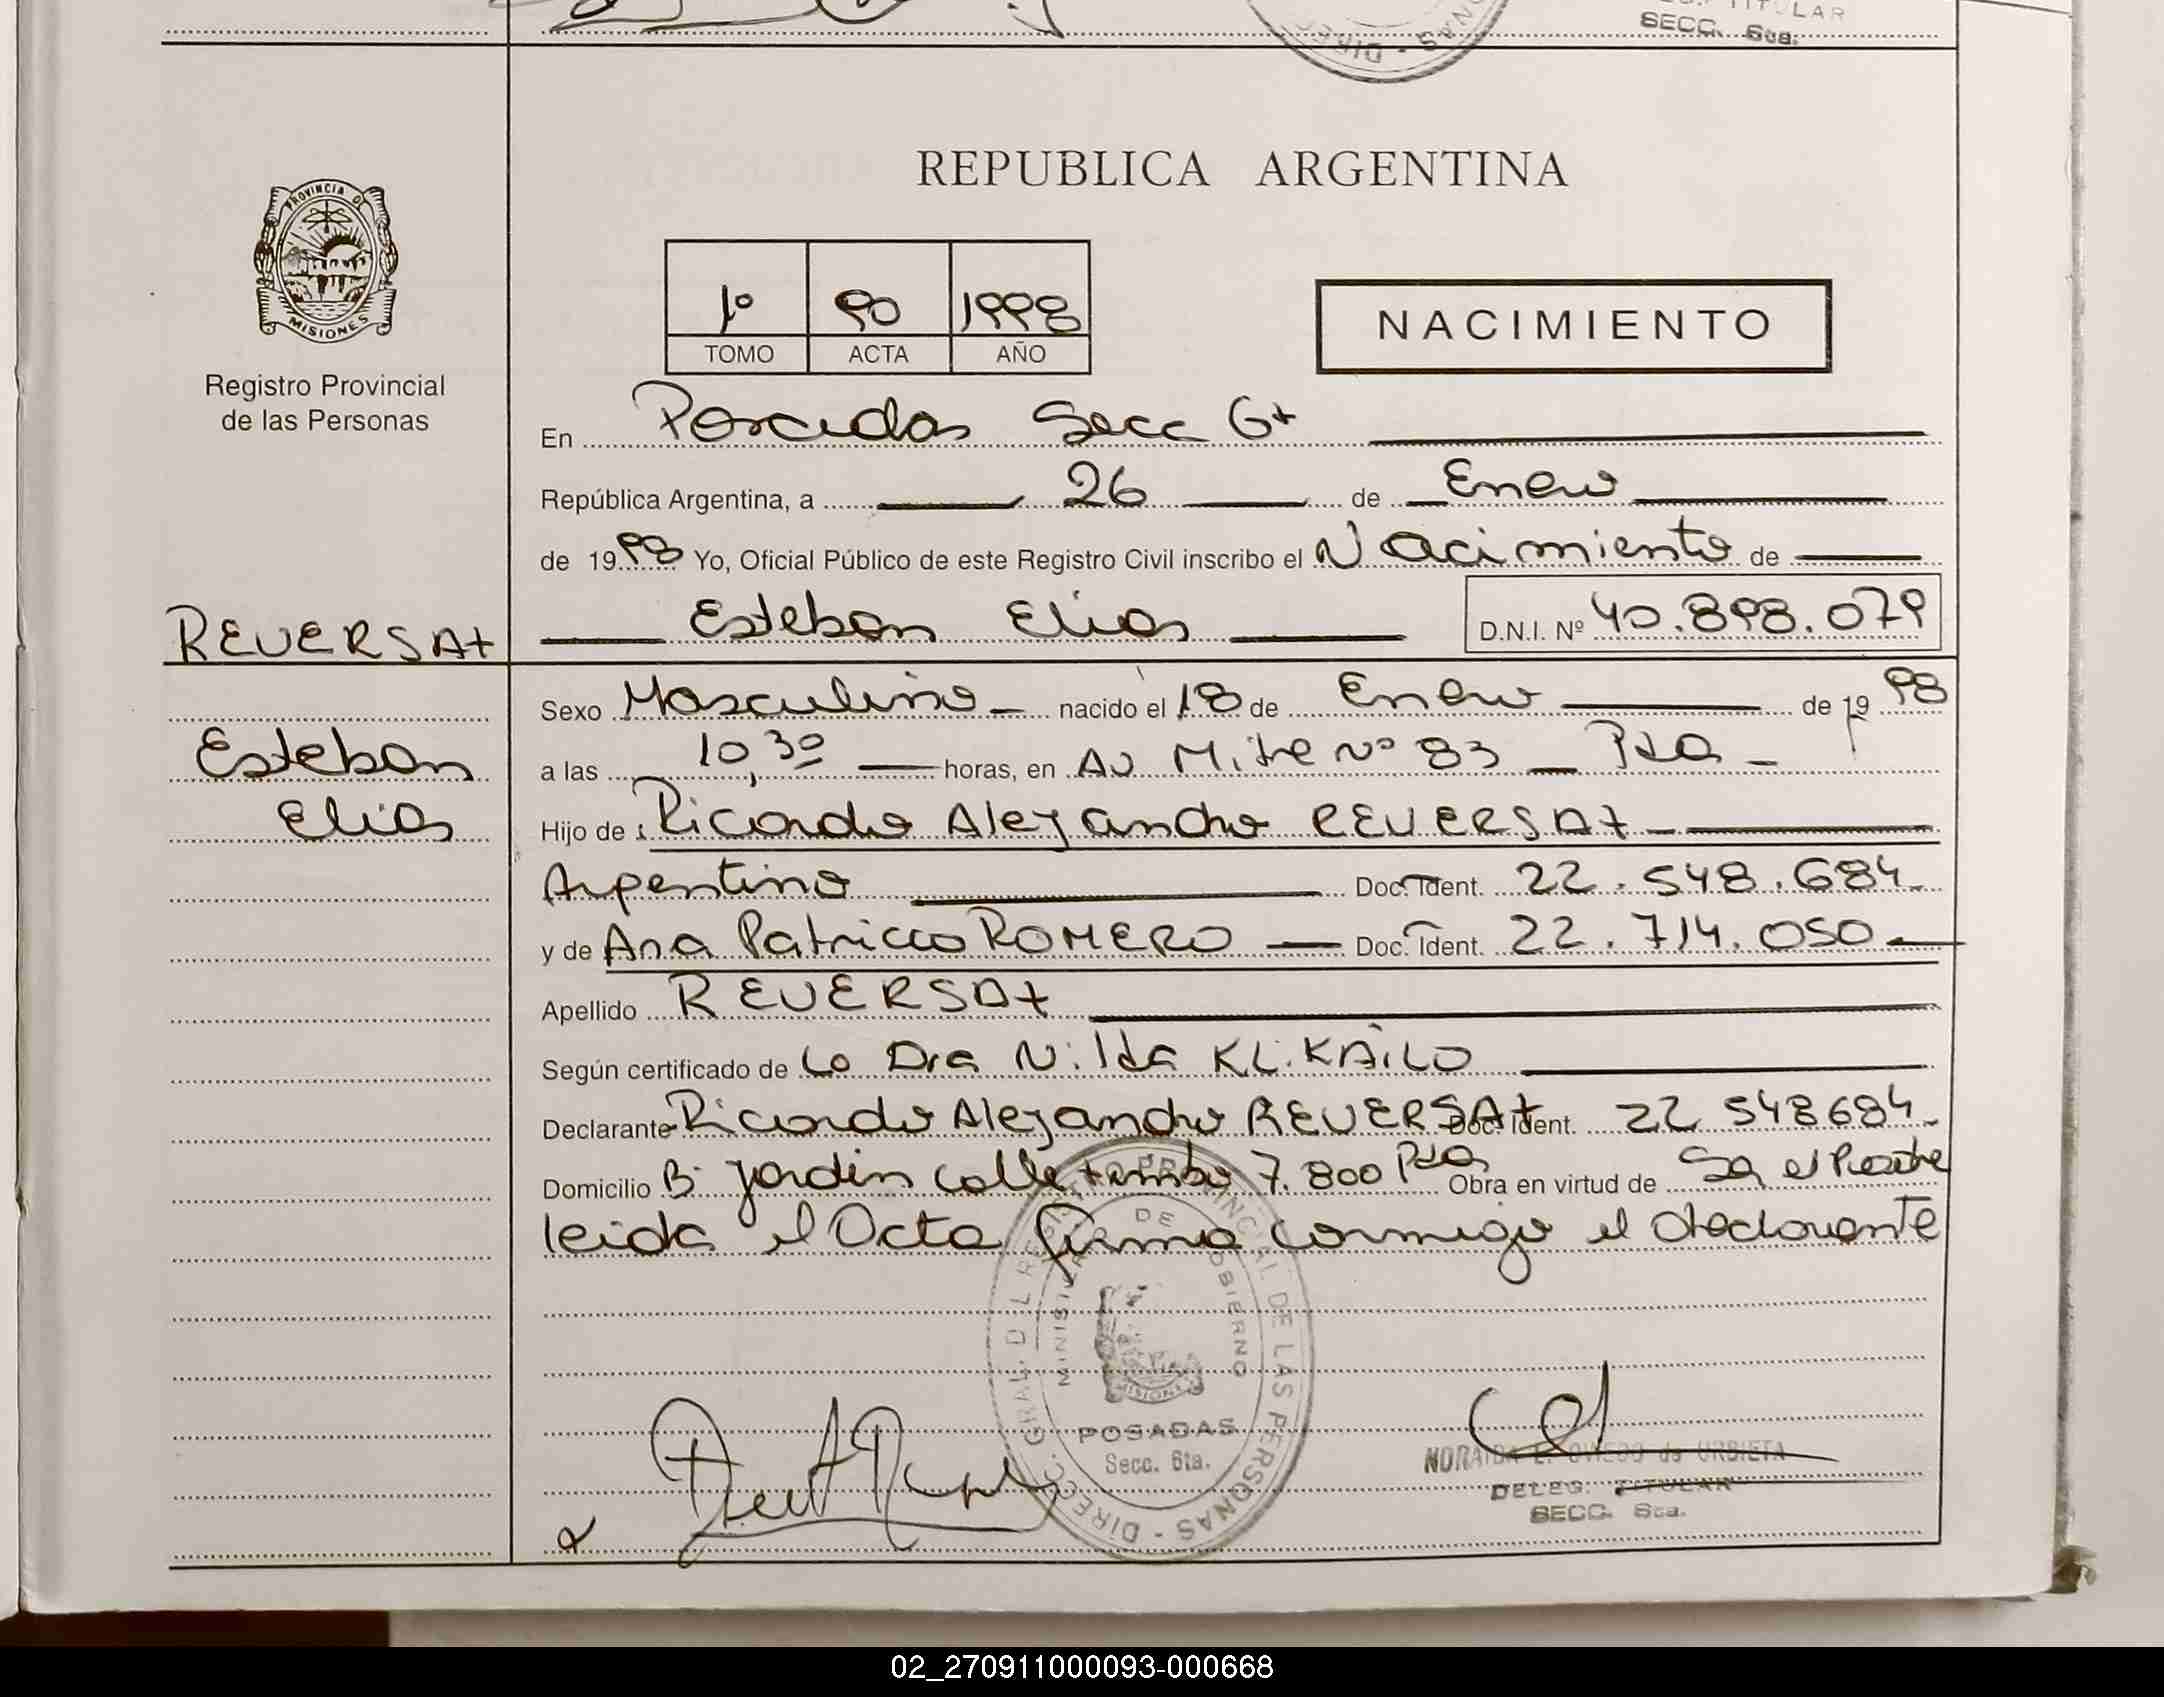 TITULAR
SECC. 6ta.
DIREC
NAS
PROVINCIA DE
MISIONES
Registro Provincial
de las Personas
REPUBLICA ARGENTINA
1º 90 1998
TOMO ACTA AÑO
NACIMIENTO
En Posadas Secc 6ta
República Argentina, a 26 de Enero
de 1998 Yo, Oficial Público de este Registro Civil inscribo el Nacimiento de
REVERSAt Esteban Elias D.N.I. Nº 40.898.079
Sexo Masculino nacido el 18 de Enero de 1998
Esteban
a las 10,30 horas, en Av Mitre Nº 83 - Pdas -
Elias
Hijo de : Ricardo Alejandro REVERSAt
Argentino Doc. Ident. 22.548.684
y de Ana Patricia ROMERO Doc. Ident. 22.714.050
Apellido REVERSAt
Según certificado de la Dra Nilda KLiKAiLO
Declarante Ricardo Alejandro REVERSAt Doc. Ident. 22 548684
Domicilio Bº Jardin calle tambo 7.800 Pdas Obra en virtud de
leida el Acta firma conmigo el declarante
DIREC. GRAL. DEL REGISTRO PROVINCIAL DE LAS PERSONAS
MINISTERIO DE GOBIERNO
MISIONES
POSADAS
Secc. 6ta.
NORAIDA E. OVIEDO de URBIETA
DELEG. TITULAR
SECC. 6ta.
02_270911000093-000668